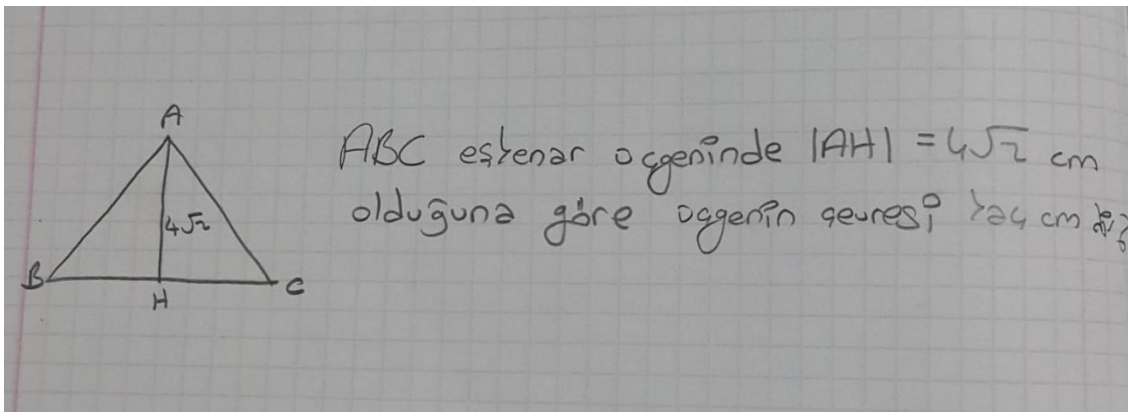 A
4√2
B
H
C
ABC eşkenar üçgeninde |AH| = 4√2 cm
olduğuna göre üçgenin çevresi kaç cm dir?